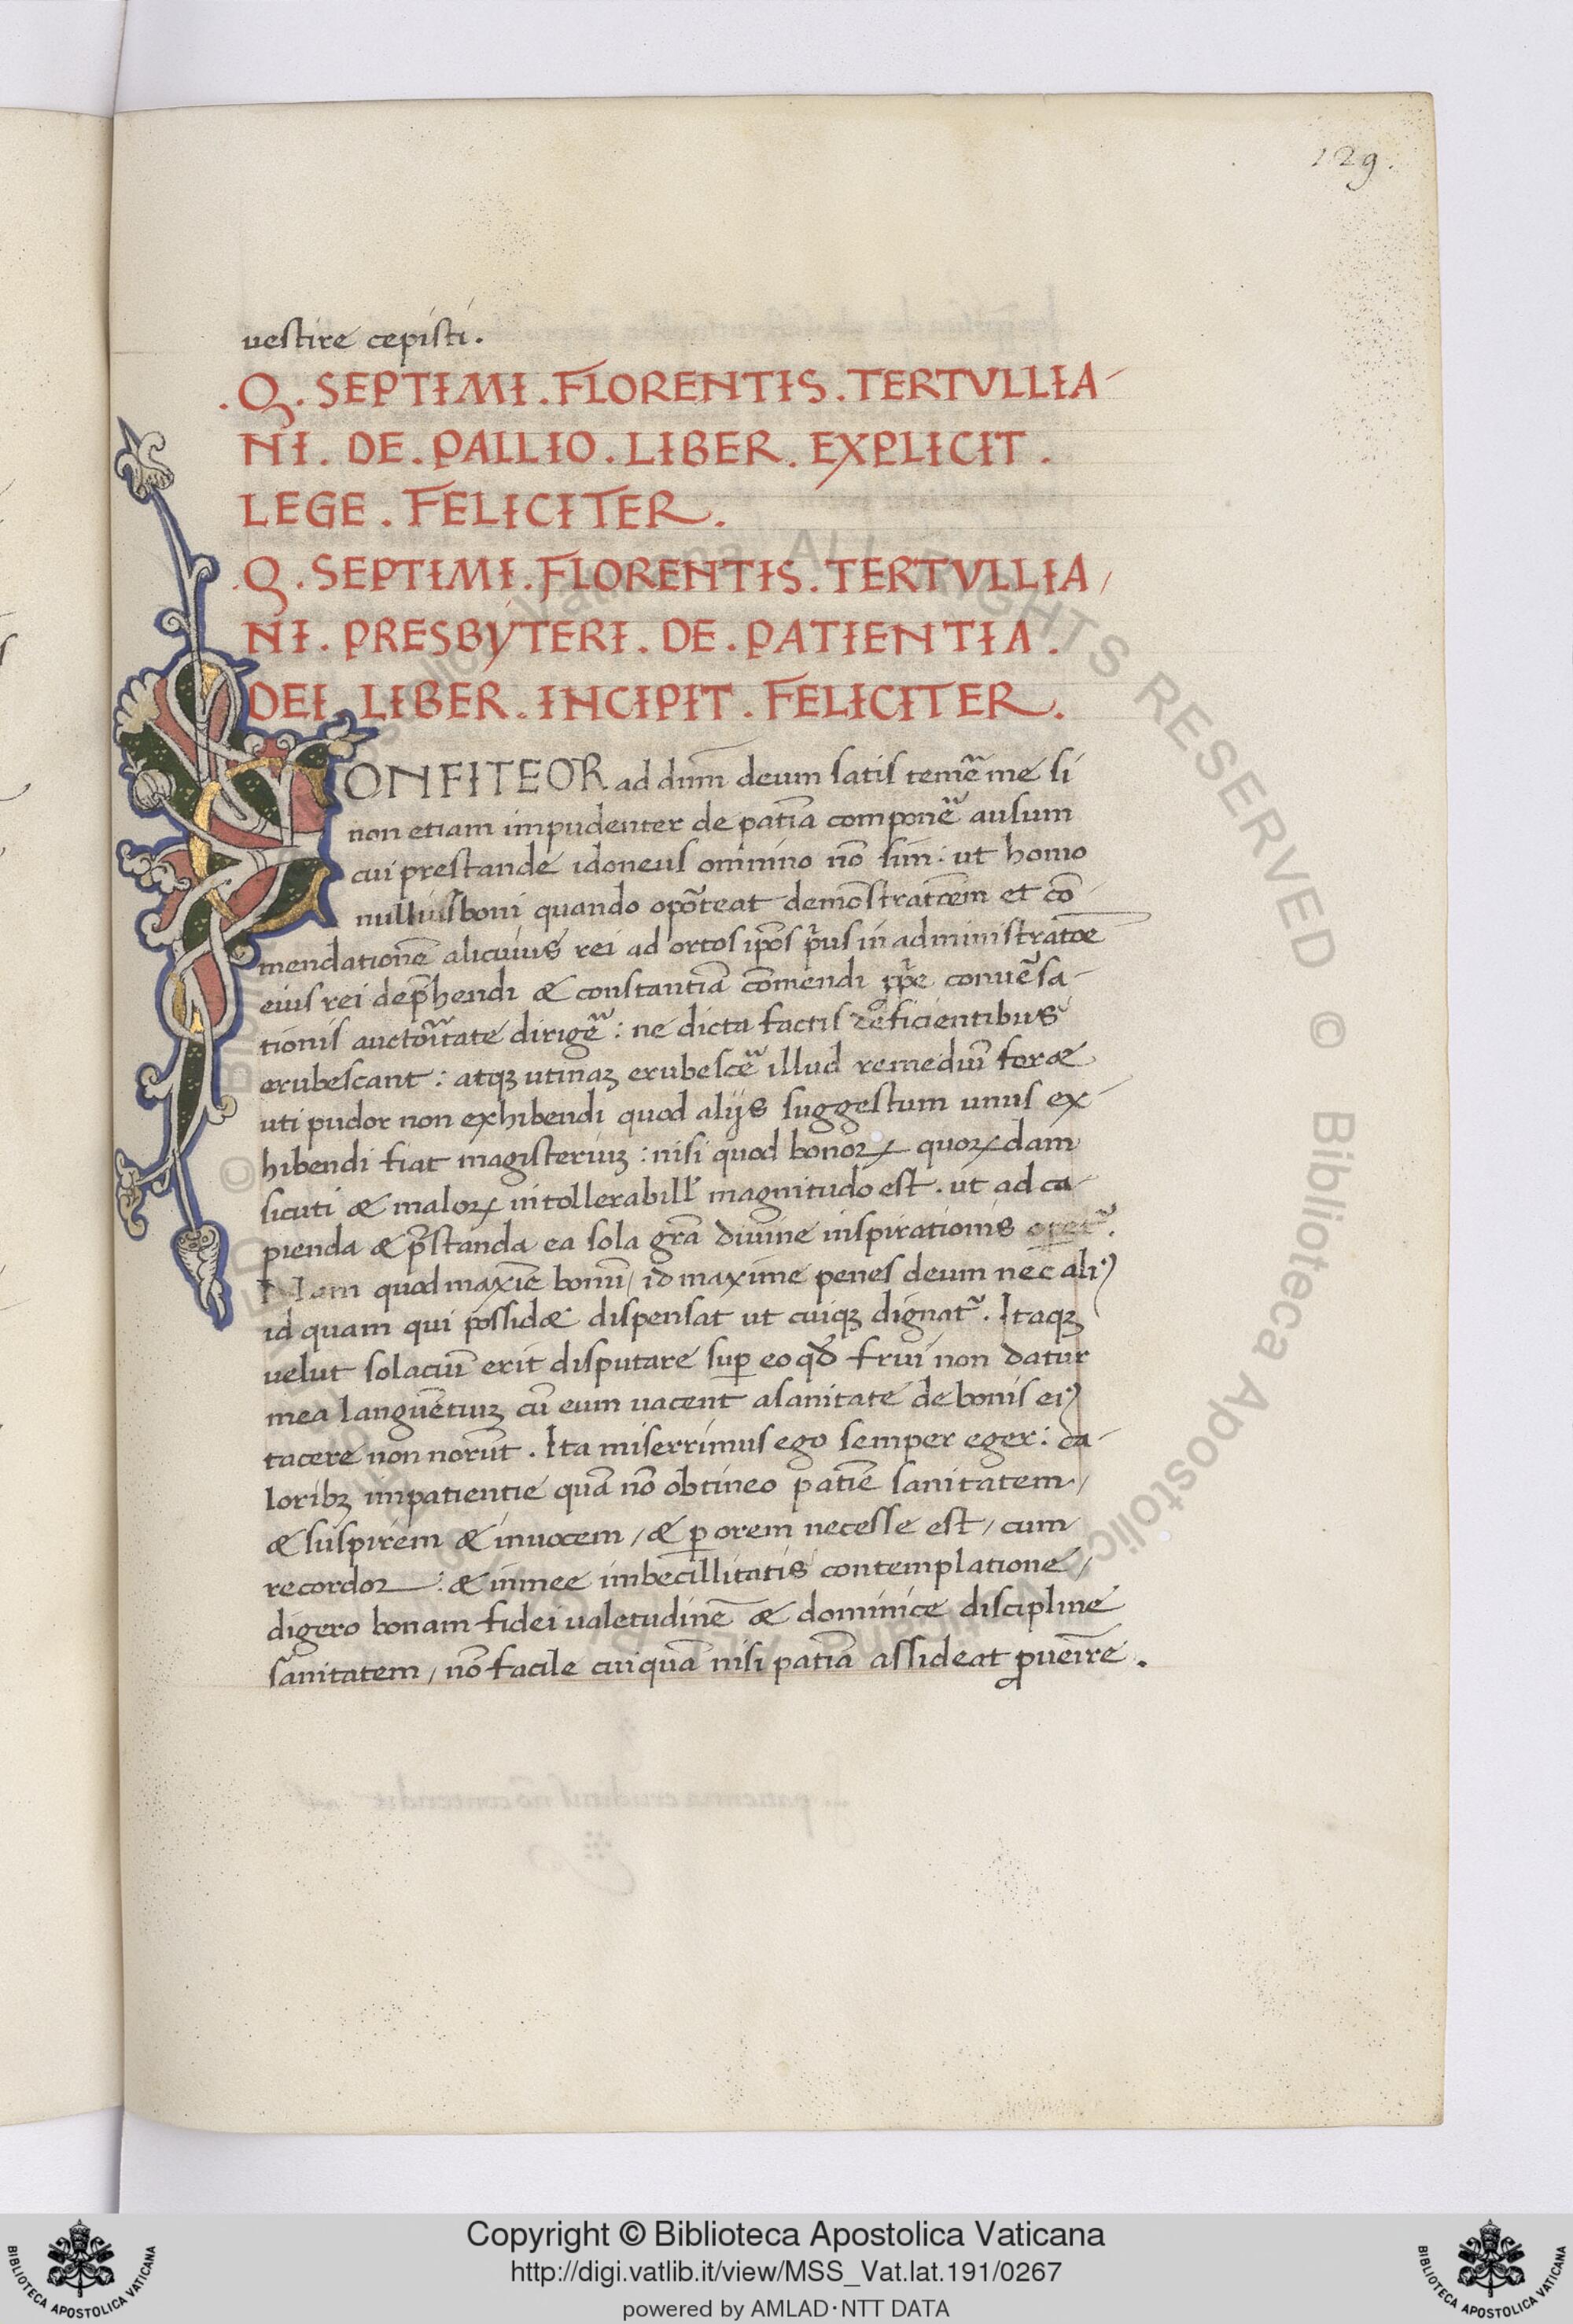 129.
vestire cepisti.
.Q. SEPTIMI. FLORENTIS. TERTVLLIA-
NI. DE. PALLIO. LIBER. EXPLICIT.
LEGE. FELICITER.
Q. SEPTIMI. FLORENTIS. TERTVLLIA/
NI. PRESBYTERI. DE. PATIENTIA.
DEI. LIBER. INCIPIT. FELICITER.
CONFITEOR ad dnm̄ deum satis temē me si
non etiam impudenter de patiā componē ausum
cui prestande idoneus omnino nō sim: ut homo
nullius boni quando opōteat demōstratōem et cō-
mendationē alicuius rei ad ortos ip̄os p̄us in administratōe
eius rei dep̄hendi & constantiā cōmendi pp̄e conuēsa-
tionis auctōitate dirigē: ne dicta factis deficientibus
erubescant: atqꝫ utinaꝫ erubescē illud remediū foræ
uti pudor non exhibendi quod alijs suggestum unus ex-
hibendi fiat magisteriuꝫ: nisi quod bonoꝝ quoꝝdam
sicuti & maloꝝ intollerabill' magnitudo est. ut ad ca-
pienda & p̄standa ea sola grā diuine inspirationis opet᷑.
Nam quod maxīe bonū/ id maxime penes deum nec aliꝰ
id quam qui possidæ dispensat ut cuiqꝫ dignat᷑. Itaqꝫ
uelut solaciū erit disputare suꝑ eo qđ frui non datur
mea languētiuꝫ cū eum uacent a sanitate de bonis eiꝰ
tacere non norūt. Ita miserrimus ego semper eger: ca-
loribꝫ impatientie quā nō obtineo patiē sanitatem/
& suspirem & inuocem/ & ꝑorem necesse est/ cum
recordor: & in mee imbecillitatis contemplatione/
digero bonam fidei ualetudinē & dominice discipline
sanitatem/ nō facile cuiquā nisi patiā assideat ꝓueīre.
Copyright © Biblioteca Apostolica Vaticana
http://digi.vatlib.it/view/MSS_Vat.lat.191/0267
powered by AMLAD·NTT DATA
BIBLIOTECA APOSTOLICA VATICANA
BIBLIOTECA APOSTOLICA VATICANA